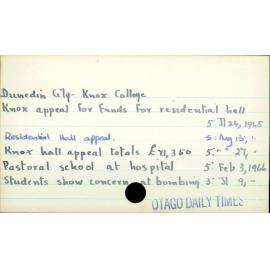 Dunedin City - Knox College
Knox appeal for funds for residential hall
5: Jl 24, 1965
Residential Hall appeal. 5: Aug 13, "
Knox hall appeal totals £71,350 5: " 27, "
Pastoral school at hospital 5: Feb 3, 1966
Students show concern at bombing 3: Jl 9, -
OTAGO DAILY TIMES